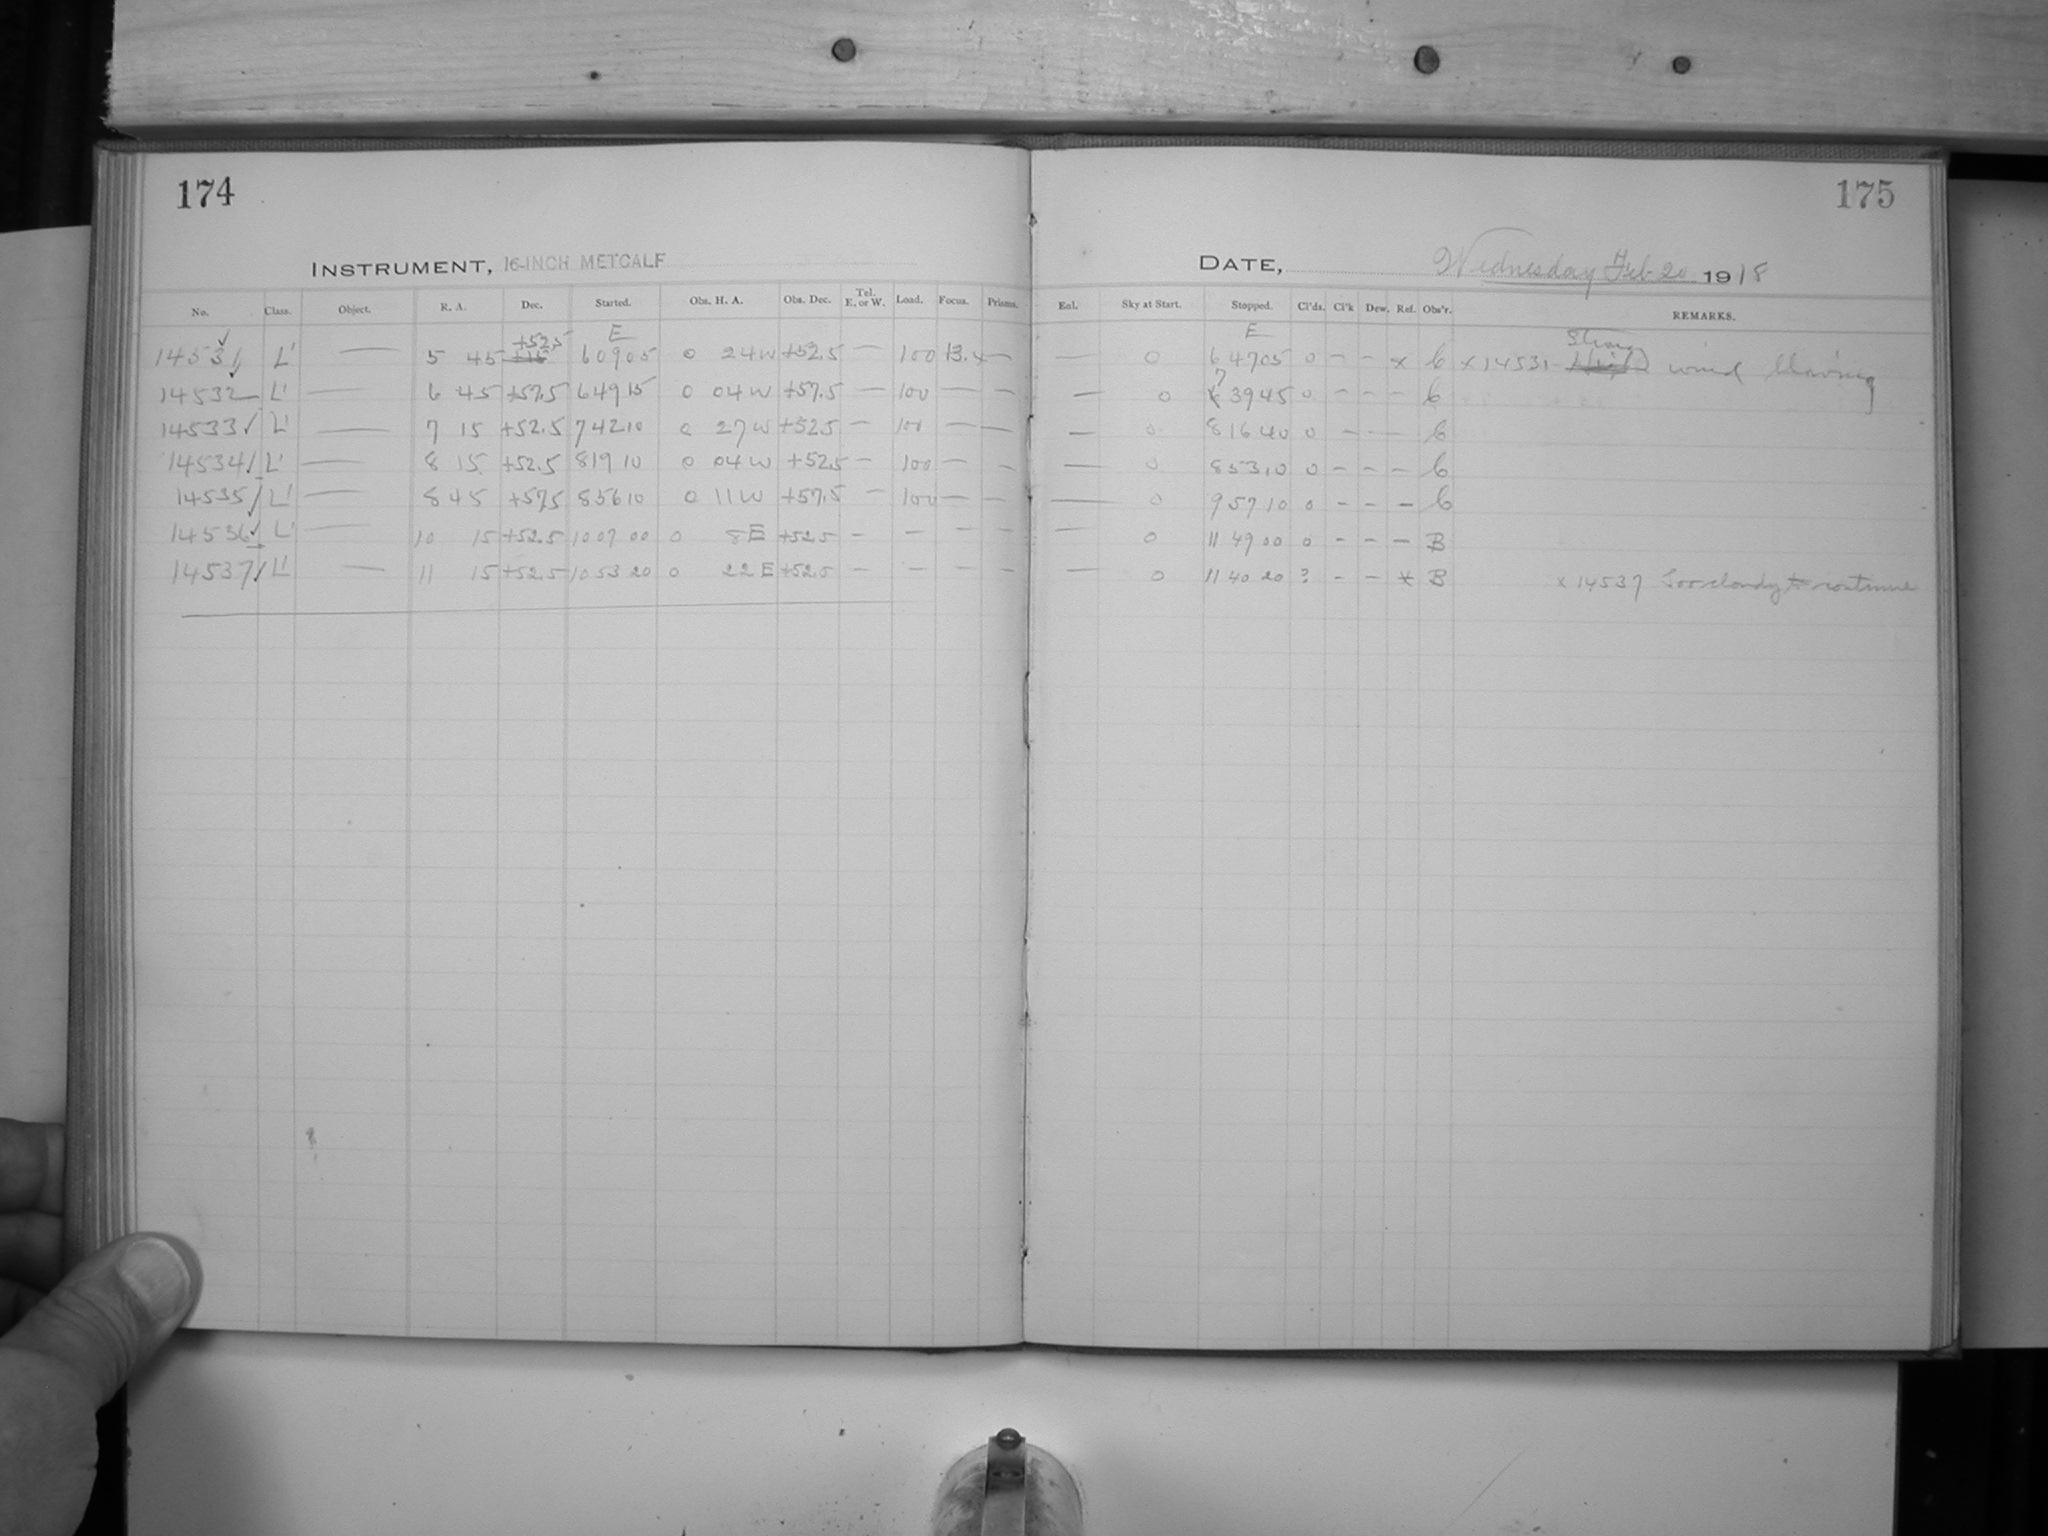 174
INSTRUMENT, 16-INCH METCALF
No. Class. Object. R. A. Dec. Started. Obs. H. A. Obs. Dec. Tel. E. or W. Load. Focus. Prisms.
+52.5 E
14531 L' — 5 45 +15 6 09 05 0 24 W +52.5 — 100 13.4 —
14532 L' — 6 45 +57.5 6 49 15 0 04 W +57.5 — 100 — —
14533 L' — 7 15 +52.5 7 42 10 0 27 W +52.5 — 100 — —
14534 L' — 8 15 +52.5 8 19 10 0 04 W +52.5 — 100 — —
14535 L' — 8 45 +57.5 8 56 10 0 11 W +57.5 — 100 — —
14536 L' — 10 15 +52.5 10 07 00 0 8 E +52.5 — — — —
14537 L' — 11 15 +52.5 10 53 20 0 22 E +52.5 — — — —
175
DATE, Wednesday Feb. 20 1918
Exl. Sky at Start. Stopped. Cl'ds. Cl'k Dew. Ref. Obs'r. REMARKS.
E Strong
— 0 6 47 05 0 – – x C x 14531 - wind blowing
7
— 0 39 45 0 – – – C
— 0 8 16 40 0 – – – C
— 0 8 53 10 0 – – – C
— 0 9 57 10 0 – – – C
— 0 11 49 00 0 – – – B
— 0 11 40 20 ? – – x B x 14537 Too cloudy to continue